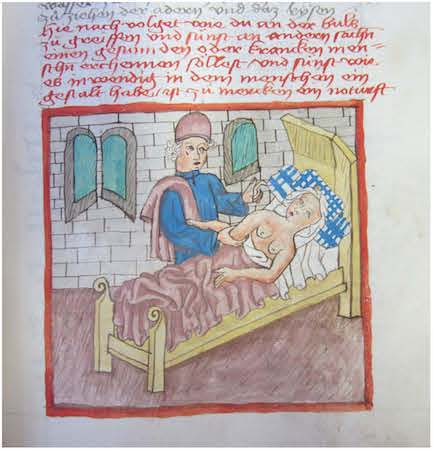 zu ziehen der adern und daz eysen
hie nach volget wie du an der pulß
zu greiffen und sunst an andern sachn
einen gesunden oder krancken men
schn erkennen sollest und sunst wie
es inwendig in dem menschen ein
gestalt habe ist zu mercken ein noturft